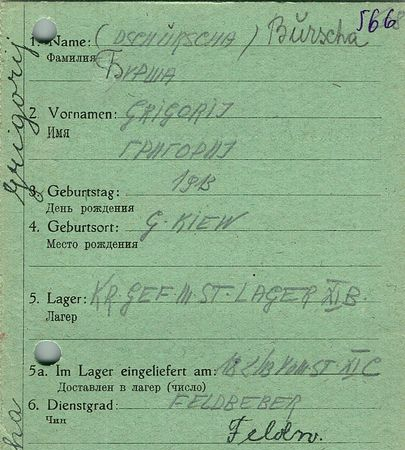 566
1. Name: (DSCHÜRSCHA) Bŭrscha
Фамилия БУРША
2 Vornamen: GRIGORIJ
Имя
ГРИГОРИЈ
3. Geburtstag: 1913
День рождения
4. Geburtsort: G. KIEW
Место рождения
5. Lager: KR. GEF. M. ST. LAGER XI B.
Лагерь
5a. Im Lager eingeliefert am: VOM. ST. XI C
Доставлен в лагерь (число)
6. Dienstgrad: FELDBEBER
Чин
Feldw.
Grigorij